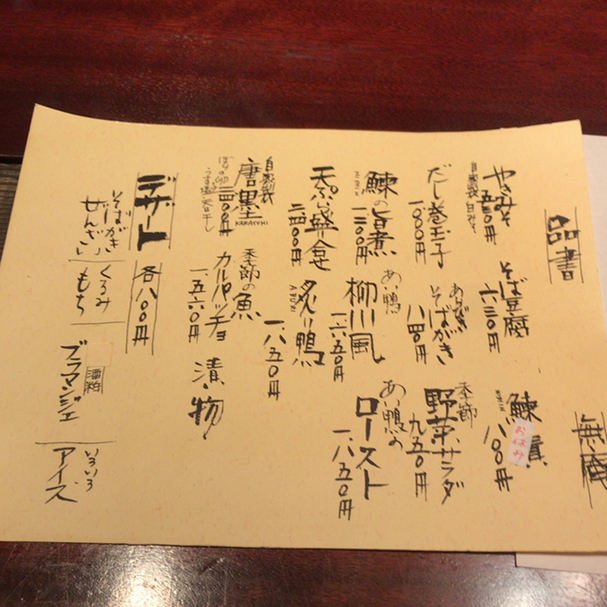 無庵
品書
やきみそ
自家製甘みそ
五〇〇円
そば豆腐
六三〇円
鰊
お休み
八〇〇円
だし巻玉子
一〇〇〇円
そばがき
八四〇円
季節
野菜サラダ
九五〇円
鰊の旨煮
一三〇〇円
あい鴨
柳川風
一、六五〇円
あい鴨の
ロースト
一、八五〇円
天ぷら盛合せ
炙り鴨
ABURI
一、八五〇円
自家製
唐墨
KARASUMI
季節の魚
カルパッチョ
一、五六〇円
漬物
デザート
各八〇〇円
そばがき
ぜんざい
くるみ
もち
酒粕
ブラマンジェ
いろいろ
アイス